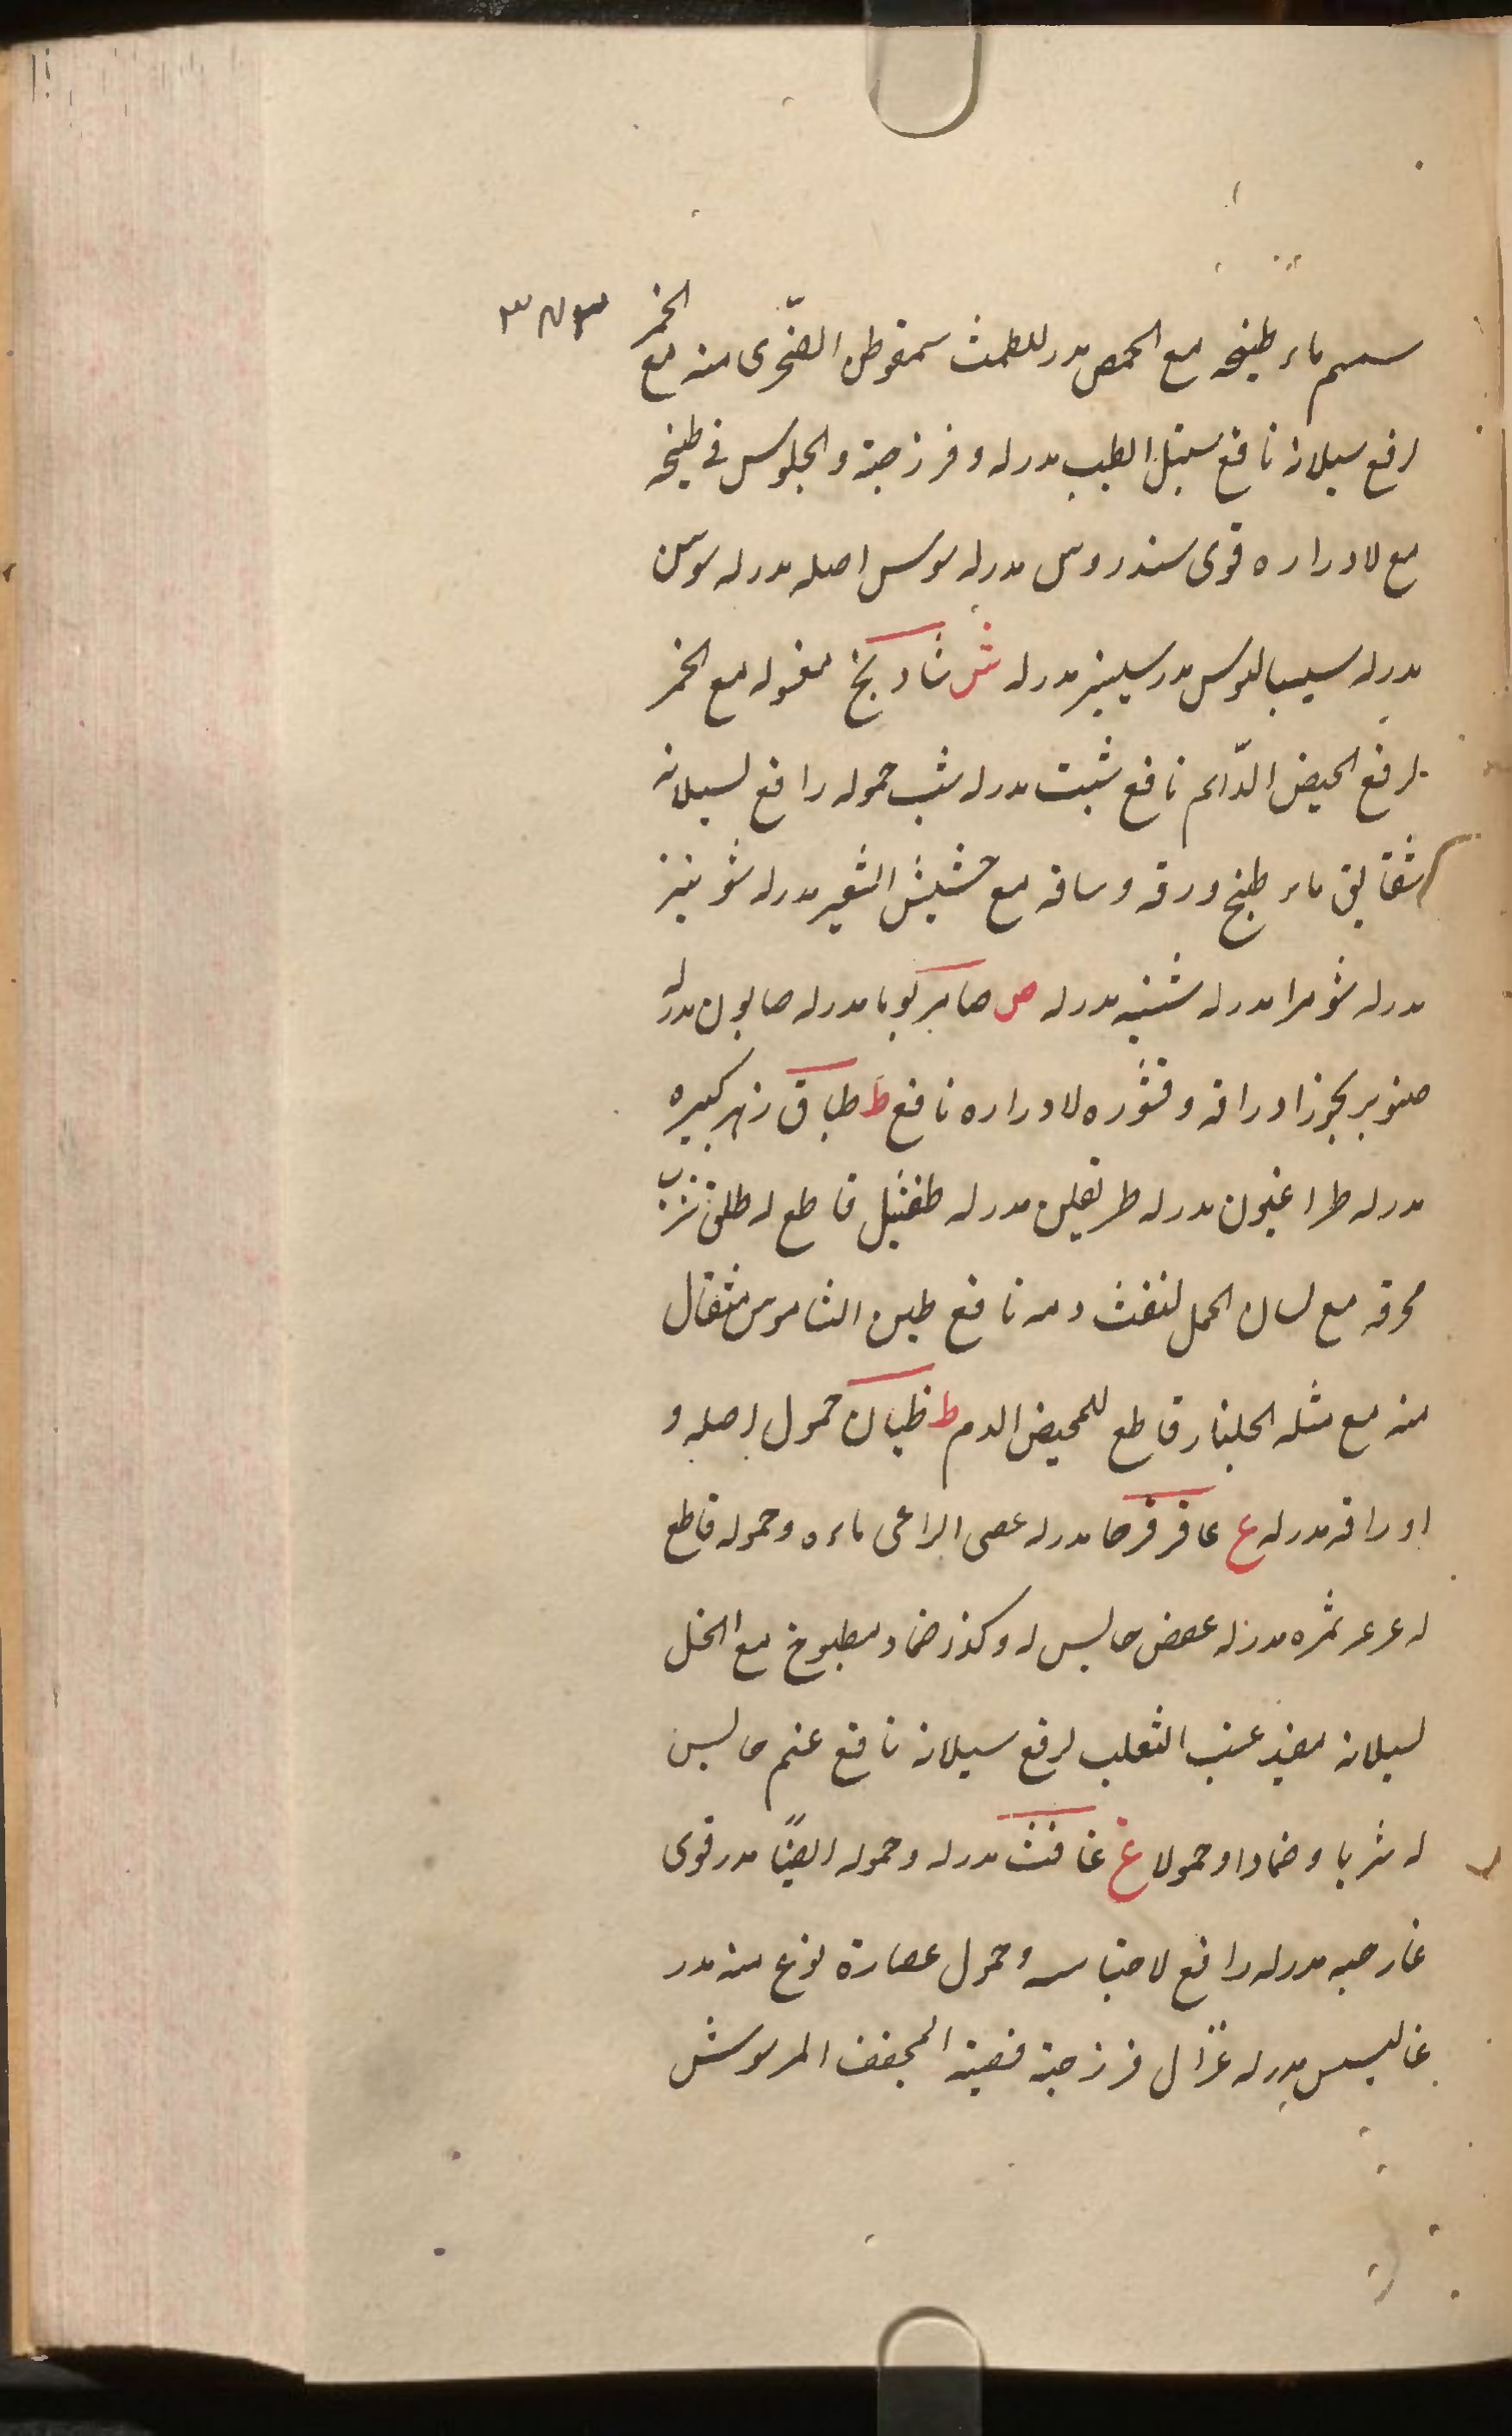 ٣٧٣
سمسم ماء طبيخه مع الحمص مدر للطمث سمقوطن الصّخرى منه مع الخمر
لرفع سيلانه نافع سنبل الطيب مدر له و فرزجة والجلوس فى طبيخه
مع لادراره قوى سندروس مدر له سوس اصله مدر له سوسن
مدر له سيساليوس مدر سليخه مدر له ش شادنج مغسوله مع الخمر
لرفع الحيض الدّائم نافع شبت مدر له شب حموله رافع لسيلانه
شقايق ماء طبخ ورقه وساقه مع حشيش الشعير مدر له شونيز
مدر له شومرا مدر له شنبه مدر له ص صامركوبا مدر له صابون مدر له
صنوبر بخور اوراقه وقشوره لادراره نافع ط طباق زهر كبيره
مدر له طراغيون مدر له طريفلن مدر له طفشيل قاطع له طلق بشرب
محرقه مع لسان الحمل لنفث دمه نافع طين الشاموس مثقال
منه مع مثله الجلنار قاطع للحيض الدم ظ ظيان حمول اصله و
اوراقه مدر له ع عاقرقرحا مدر له عصى الراعى ماءه وحموله قاطع
له عرعر ثمره مدر له عفص حابس له وكذا ضماد مطبوخ مع الخل
لسيلانه مفيد عنب الثعلب لرفع سيلانه نافع عنم حابس
له شربا وضمادا وحمولا غ غافث مدر له وحموله ايضًا مدر قوى
غار حبه مدر له رافع لاحتباسه وحمول عصارة نوع منه مدر
غاليبسس مدر له غزال فرزجة المجفف المرسوش